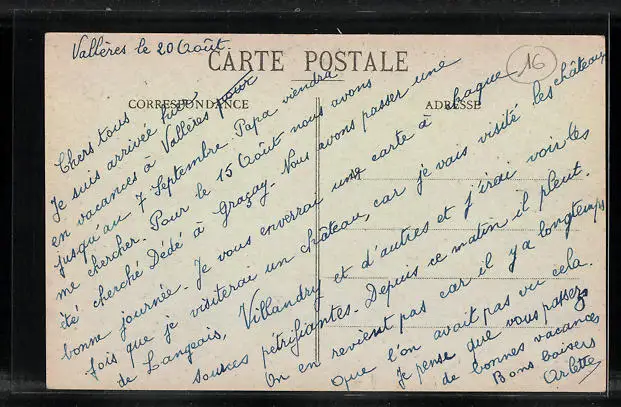 Vallères le 20 Août.
CARTE POSTALE
16
CORRESPONDANCE
ADRESSE
Chers tous
Je suis arrivée hier
en vacances à Vallères pour
jusqu'au 7 Septembre. Papa viendra
me chercher. Pour le 15 Août nous avons
été cherché Dédé à Graçay. Nous avons passer une
bonne journée. Je vous enverrai une carte à chaque
fois que je visiterai un château, car je vais visité les château
de Langeais, Villandry et d'autres et j'irai voir les
sources pétrifiantes. Depuis ce matin il pleut.
On en revient pas car il y a longtemps
que l'on avait pas vu cela.
Je pense que vous passez
de bonnes vacances
Bons baisers
Arlette